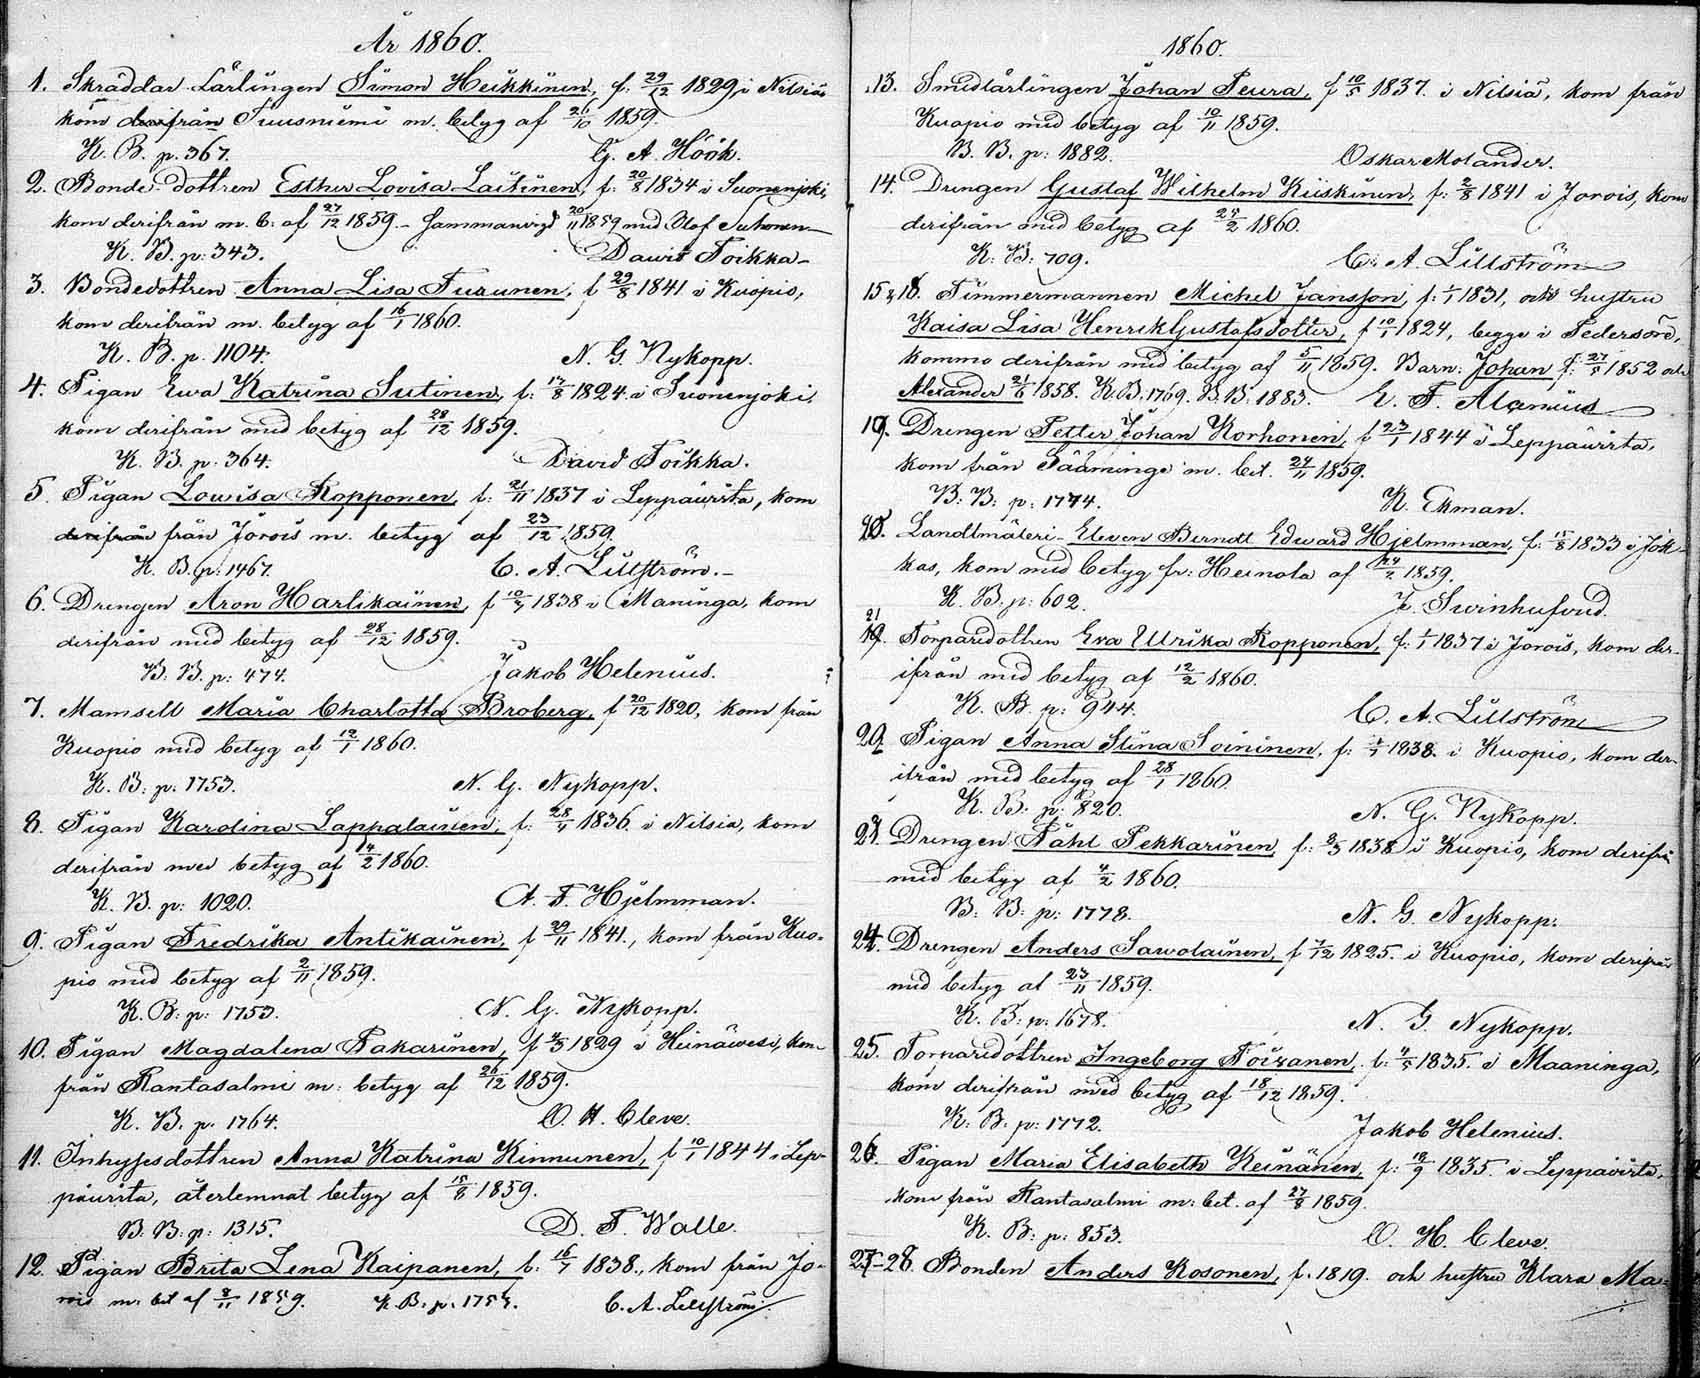 År 1860.
1. Skräddar Lärlingen Simon Heikkinen, f. 29/12 1829 i Nilsiä
kom derifrån Tuusniemi m. betyg af 26/10 1859.
K. B. p. 367. G. A. Höök.
2. Bonde-dottren Esther Lovisa Laitinen, f: 20/8 1834 i Suonenjoki,
kom derifrån m. b: af 27/12 1859. - Sammanvigd 20/11 1859 med Olof Suhonen
K. B. p: 343. David Toikka
3. Bondedottren Anna Lisa Turunen, f 29/8 1841 i Kuopio,
kom derifrån m. betyg af 16/1 1860.
K. B. p. 1104. N. G. Nykopp.
4. Pigan Ewa Katrina Sutinen, f: 17/8 1824 i Suonenjoki,
kom derifrån med betyg af 28/12 1859.
K. B. p. 364. David Toikka.
5. Pigan Lowisa Kopponen, f: 21/11 1837 i Leppävirta, kom
derifrån från Jorois m. betyg af 23/12 1859.
K. B. p: 1467. C. A. Lillström.-
6. Drengen Aron Harlikainen, f 10/4 1838 i Maninga, kom
derifrån med betyg af 28/12 1859.
B. B. p: 474. Jakob Helenius.
7. Mamsell Maria Charlotta Broberg, f 20/12 1820, kom från
Kuopio med betyg af 12/1 1860.
K. B. p. 1753. N. G. Nykopp.
8. Pigan Karolina Lappalainen, f: 28/4 1836 i Nilsiä, kom
derifrån med betyg af 4/2 1860.
K. B. p: 1020. A. F. Hjelmman.
9. Pigan Fredrika Antikainen, f 29/11 1841., kom från Kuo-
pio med betyg af 2/11 1859.
K. B: p: 1753. N. G. Nykopp.
10. Pigan Magdalena Pakarinen, f 4/3 1829 i Heinävesi, kom
från Rantasalmi m: betyg af 26/12 1859.
K. B. p. 1764. O. H. Cleve.
11. Inhysesdottren Anna Katrina Kinnunen, f 10/1 1844 i Lep-
pävirta, återlemnat betyg af 15/8 1859.
B. B. p: 1315. D. F. Walle.
12. Pigan Brita Lena Kaipanen, f. 16/7 1838., kom från Jo-
rois m: bet af 8/11 1859. K. B. p. 1754. C. A. Lillström.
1860.
13. Smedlärlingen Johan Peura, f 10/5 1837. i Nilsiä, kom från
Kuopio med betyg af 10/11 1859.
B. B. p: 1882. Oskar Molander.
14. Drengen Gustaf Wilhelm Kiiskinen, f: 2/8 1841 i Jorois, kom
derifrån med betyg af 24/2 1860.
K: B: 709. C. A. Lillström
15 & 18. Timmermannen Michel Jansson, f: 1/1 1831, och hustru
Kaisa Lisa Henrik Gustafsdotter, f 10/1 1824, begge i Pedersöre,
kommo derifrån med betyg af 5/11 1859. Barn: Johan f: 27/5 1852 och
Alexander 21/6 1858. K. B. 1769. B. B. 1883. E. F. Alcenius
19. Drengen Petter Johan Korhonen, f 23/1 1844 i Leppävirta,
kom från Sääminge m. bet. 24/11 1859.
B: B: p: 1774. K. Ekman.
20. Landtmäteri-Eleven Berndt Edward Hjelmman, f: 15/8 1833 i Jok-
kas, kom med betyg fr: Heinola af 1859.
K. B. p: 602. J. Svinhufvud.
21
19. Torparedottren Eva Ulrika Kopponen, f: 1/1 1837 i Jorois, kom der-
ifrån med betyg af 12/2 1860.
K. B. p: 944. C. A. Lillström
22 Pigan Anna Stina Soininen, f: 1838. i Kuopio, kom der-
ifrån med betyg af 28/1 1860.
K. B. p: 820. N. G. Nykopp.
23. Drengen Påhl Pekkarinen, f: 8/3 1838 i Kuopio, kom derifrån
med betyg af 4/2 1860.
B. B: p: 1778. N. G. Nykopp:
24. Drengen Anders Sawolainen, f 7/12 1825. i Kuopio, kom derifrån
med betyg af 23/11 1859.
K. B: p: 1678. N. G. Nykopp.
25. Torparedottren Ingeborg Toivanen, f: 4/5 1835. i Maaninga,
kom derifrån med betyg af 18/12 1859.
K. B. p: 1772. Jakob Helenius.
26. Pigan Maria Elisabeth Keinänen, f: 19/9 1835 i Leppävirta,
kom från Rantasalmi m: bet. af 27/8 1859
K. B: p: 853. O. H. Cleve.
27-28. Bonden Anders Kosonen, f. 1819. och hustru Klara Ma-